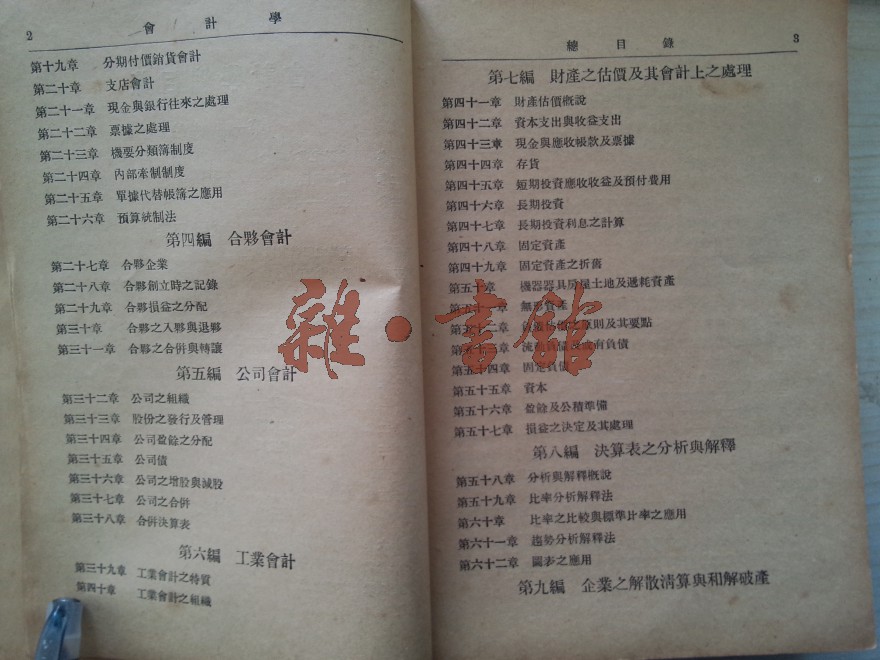 2
會計學
第十九章 分期付價銷貨會計
第二十章 支店會計
第二十一章 現金與銀行往來之處理
第二十二章 票據之處理
第二十三章 機要分類簿制度
第二十四章 內部牽制制度
第二十五章 單據代替帳簿之應用
第二十六章 預算統制法
第四編 合夥會計
第二十七章 合夥企業
第二十八章 合夥創立時之記錄
第二十九章 合夥損益之分配
第三十章 合夥之入夥與退夥
第三十一章 合夥之合併與轉讓
第五編 公司會計
第三十二章 公司之組織
第三十三章 股份之發行及管理
第三十四章 公司盈餘之分配
第三十五章 公司債
第三十六章 公司之增股與減股
第三十七章 公司之合併
第三十八章 合併決算表
第六編 工業會計
第三十九章 工業會計之特質
第四十章 工業會計之組織
總目錄
3
第七編 財產之估價及其會計上之處理
第四十一章 財產估價概說
第四十二章 資本支出與收益支出
第四十三章 現金與應收帳款及票據
第四十四章 存貨
第四十五章 短期投資應收收益及預付費用
第四十六章 長期投資
第四十七章 長期投資利息之計算
第四十八章 固定資產
第四十九章 固定資產之折舊
第五十章 機器器具房屋土地及遞耗資產
第五十一章 無形資產
第五十二章 負債估價之原則及其要點
第五十三章 流動負債及或有負債
第五十四章 固定負債
第五十五章 資本
第五十六章 盈餘及公積準備
第五十七章 損益之決定及其處理
第八編 決算表之分析與解釋
第五十八章 分析與解釋概說
第五十九章 比率分析解釋法
第六十章 比率之比較與標準比率之應用
第六十一章 趨勢分析解釋法
第六十二章 圖表之應用
第九編 企業之解散清算與和解破產
雜·書館